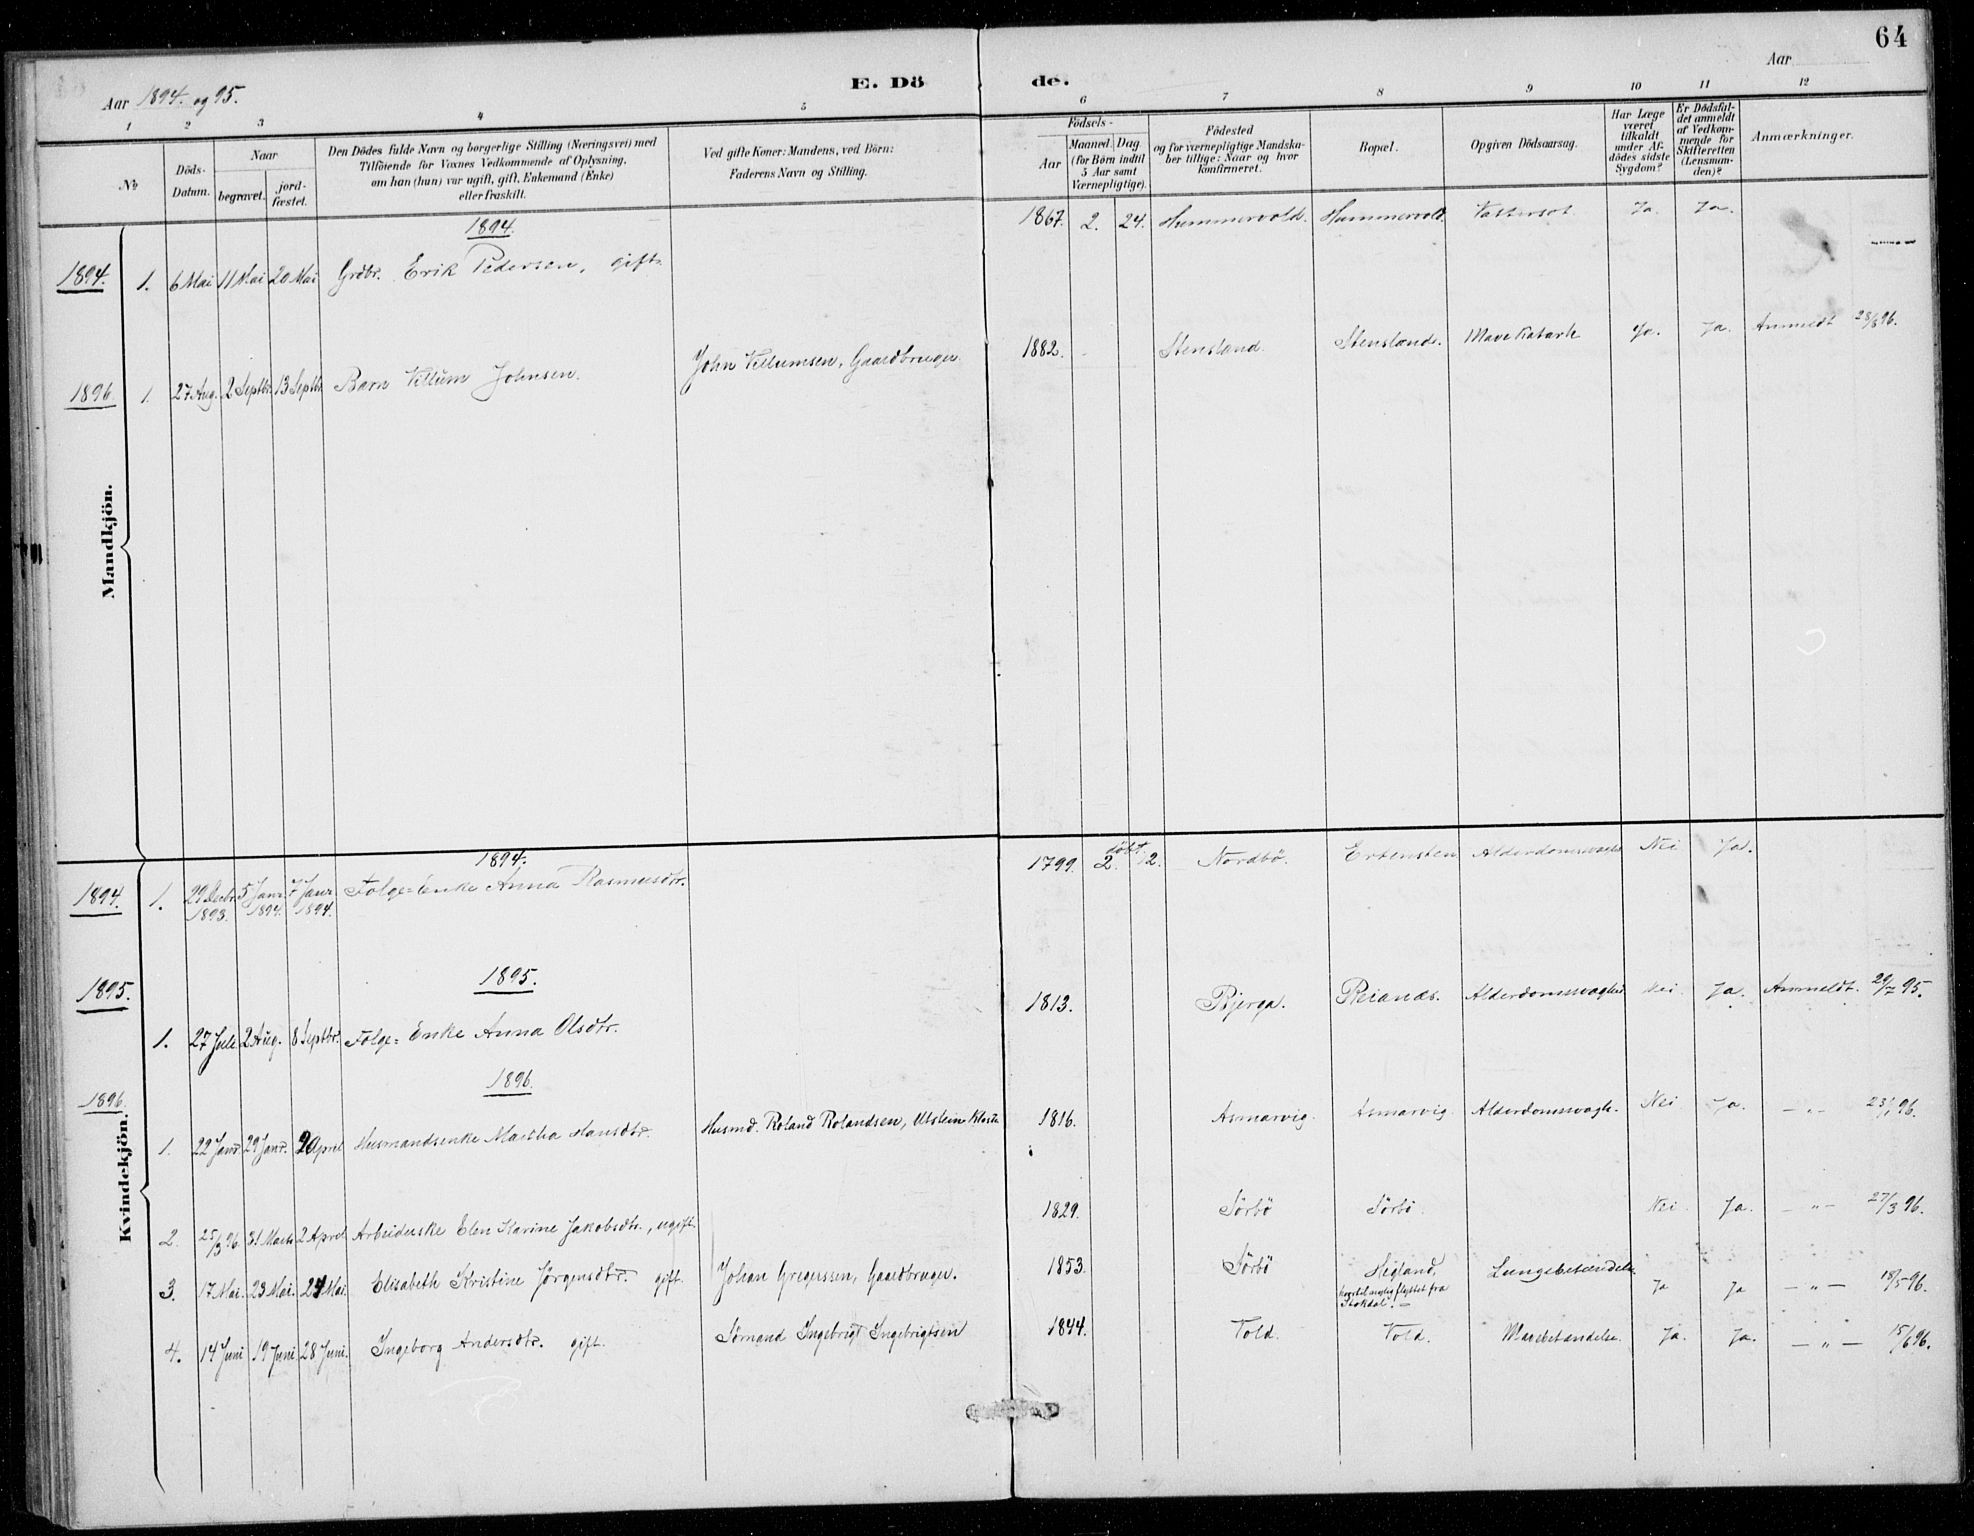 64
Aar 1894. og 95.
E. Dö de.
Aar
1 2 3 4 5 6 7 8 9 10 11 12
No
Döds-Datum.
Naar
begravet.
jord-fæstet.
Den Dödes fulde Navn og borgerlige Stilling (Næringsvei) med
Tilföiende for Voxnes Vedkommende af Oplysning,
om han (hun) var ugift, gift, Enkemand (Enke)
eller fraskilt.
Ved gifte Koner: Mandens, ved Börn:
Faderens Navn og Stilling.
Födsels-
Aar
Maaned. Dag
(for Börn indtil
5 Aar samt
Værnepligtige).
Födested
og for værnepligtige Mandska-
ber tillige: Naar og hvor
konfirmeret.
Bopæl.
Opgiven Dödsaarsag.
Har Læge
været
tilkaldt
under Af-
dödes sidste
Sygdom?
Er Dödsfal-
det anmeldt
af Vedkom-
mende for
Skifteretten
(Lensman-
den)?
Anmærkninger.
Mandkjön.
1894.
1894. 1. 6 Mai 11 Mai 20 Mai Grdbr. Erik Pedersen, gift. 1867. 2. 24. Hummervold. Hummervold. Ja. Ja.
1896. 1. 27 Aug. 2 Septbr. 13 Septbr. Barn Villum Johnsen. John Villumsen, Gaardbruger. 1882. Stensland. Stensland. Mave Katarh Ja. Ja. Anmeldt 28/8 96.
Kvindekjön.
1894.
1894. 1. 29 Decbr. 1893. 5 Janr. 1894. 7 Janr. 1894. Folge-Enke Anna Rasmusdtr. 1799. döbt 2. 2. Nordbö. Erbensten Nei Ja.
1895.
1895. 1. 27 Juli 2 Aug. 8 Septbr. Folge-Enke Anna Olsdtr. 1813. Bjerga. Reiands. Nei. Ja. Anmeldt. 29/7 95.
1896.
1896. 1. 22 Janr. 29 Janr. April Husmandsenke Martha Hansdtr. Husmd. Roland Rolandsen, Utstein Kloster 1816. Asmarvig. Asmarvig. Alderdomsvagh. Nei Ja. — „ — 23/1 96.
2. 25/3 96. 31 Marts 2 April Arbeiderske Elen Karine Jakobsdtr., ugift. 1829. Sörbö Sörbö. Nei. Ja. — „ — 27/3 96.
3. 17 Mai. 23 Mai. 24 Mai. Elisabeth Kristine Jörgensdtr. gift. Johan Gregerssen, Gaardbruger. 1853. Sörbö Heigland, flyttet fra Stokdal. Lungebetændelse Ja Ja — „ — 18/5 96.
4. 14 Juni 19 Juni 28 Juni. Ingeborg Andersdtr. gift. Sömand Ingebrigt Ingebrigtsen 1844. Vold. Vold. Mavebetændelse. Ja. Ja. — „ — 15/6 96.